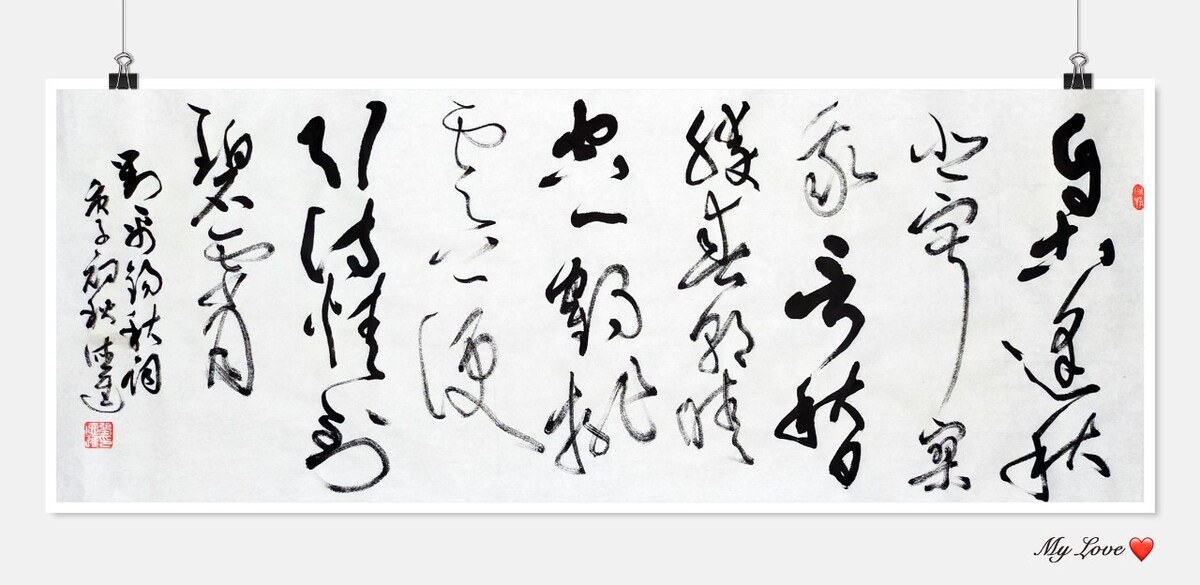 自古逢秋
悲寂寥
我言秋日
勝春朝晴
空一鶴排
雲上便
引詩情到
碧霄
劉禹錫秋詞
庚子初秋
My Love❤️